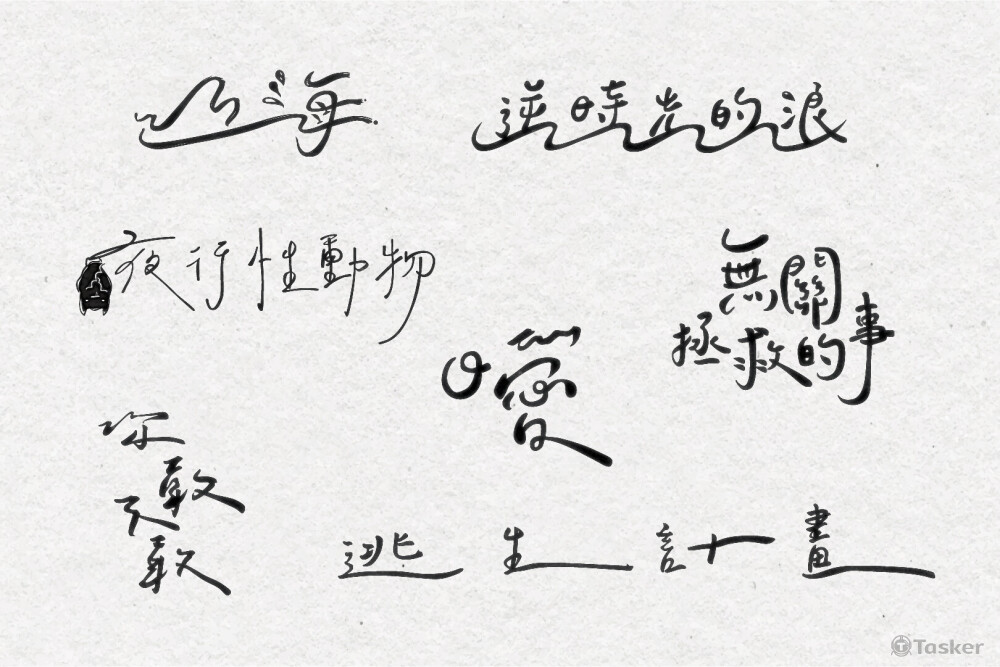 山海
逆時光的浪
夜行性動物
無關
拯救的事
曖
你
敢
不
敢
逃生計畫
Tasker